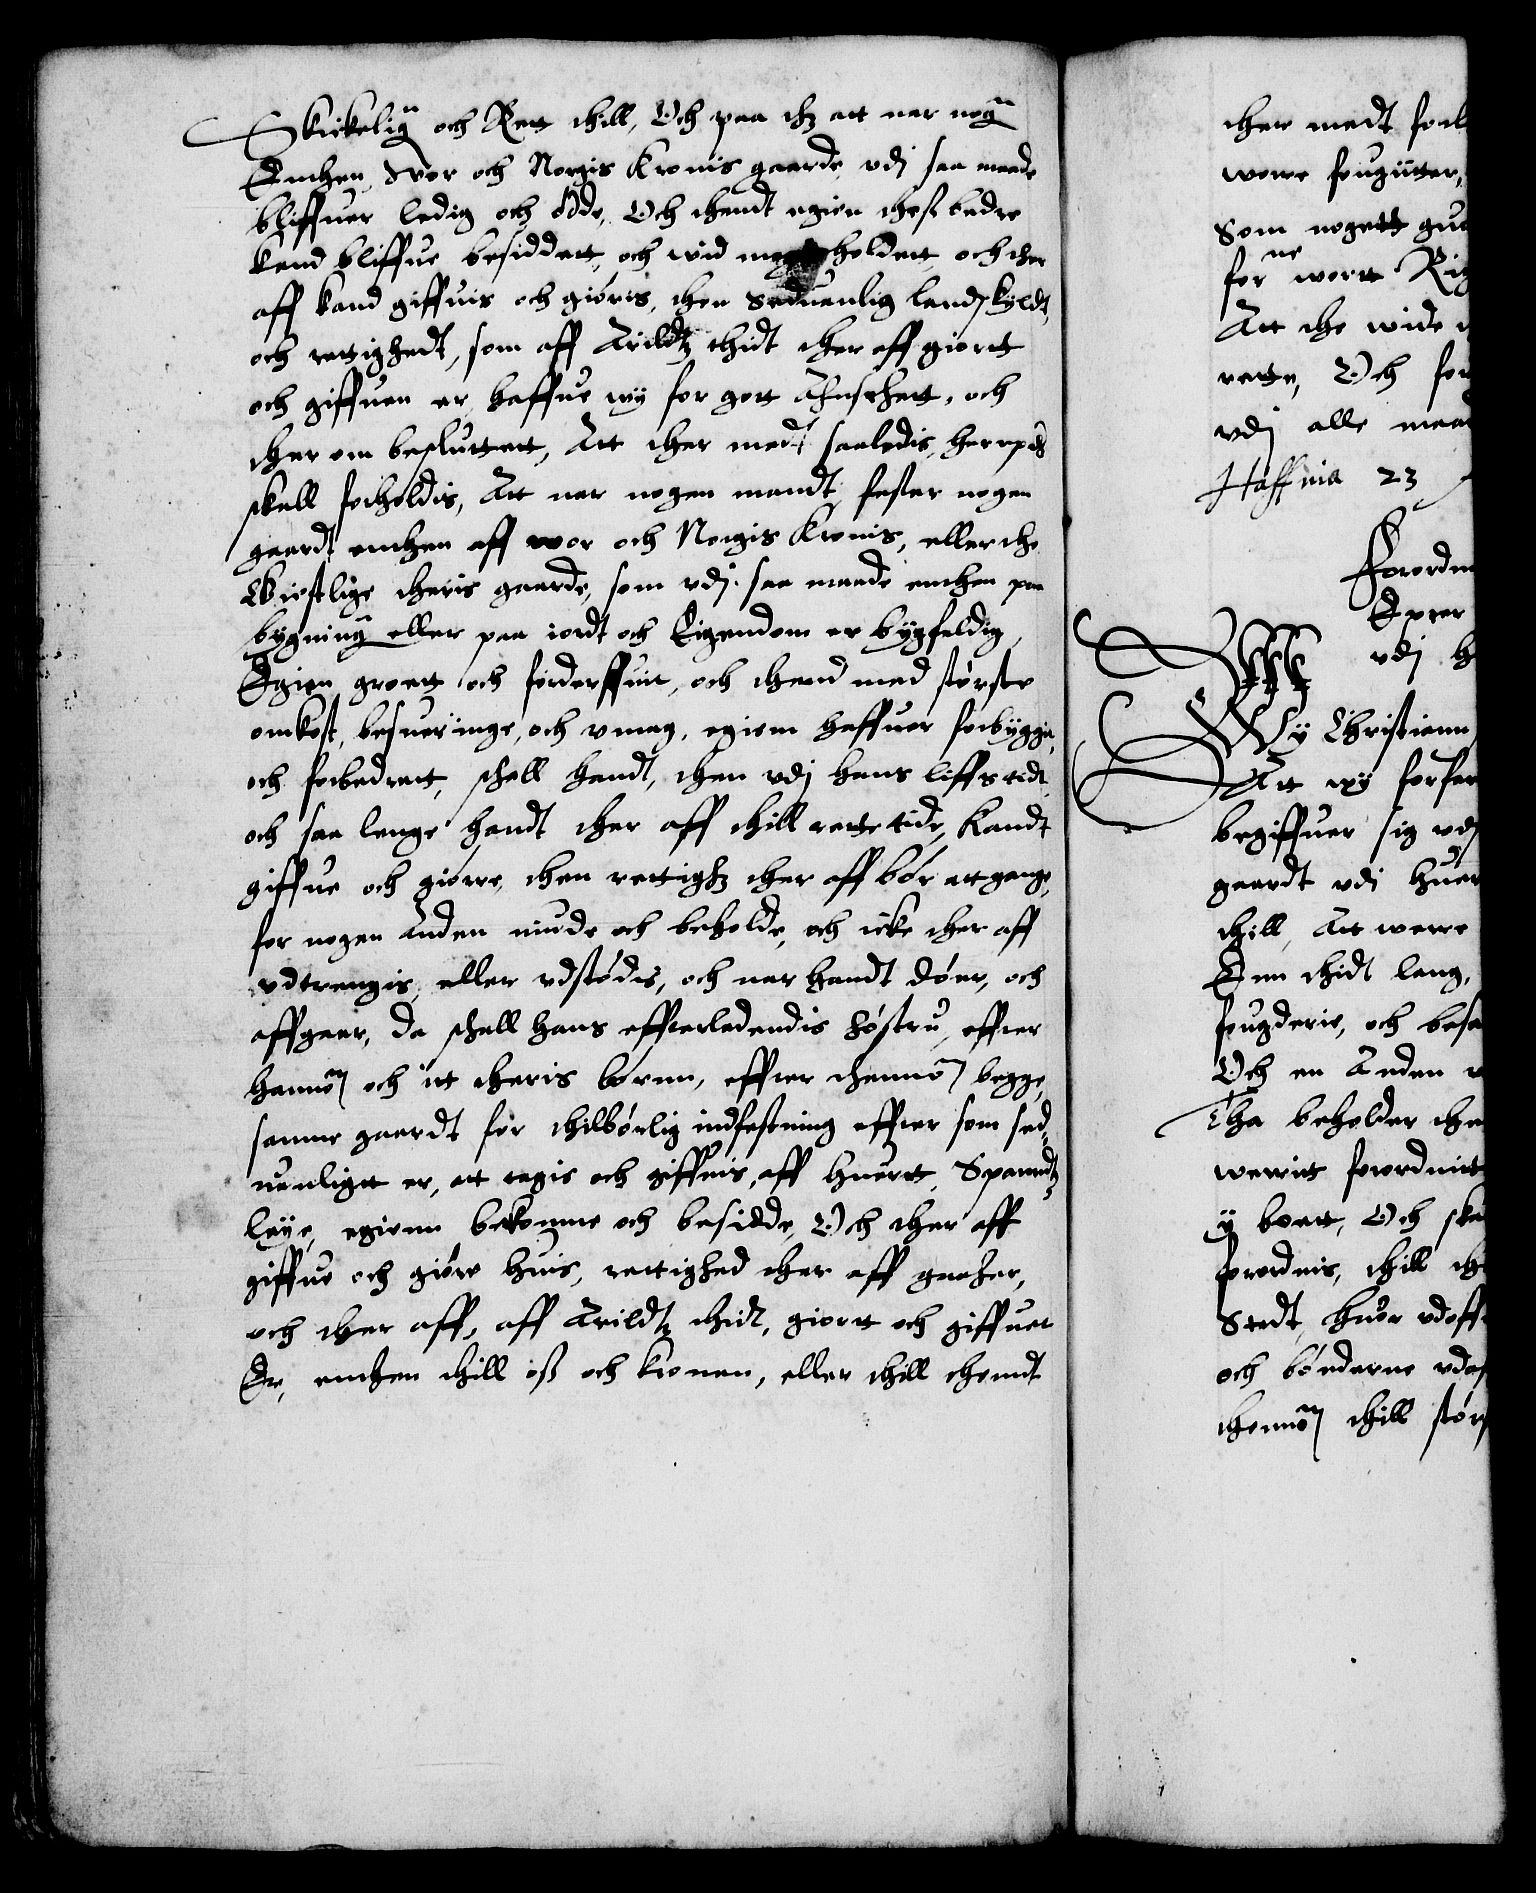 Skickelig och Rett thill, Och paa thz att nar nogen
Enthen Wor och Norgis Kronis gaarde, vdj saa maade
bliffuer ledig och ödde, Och thendt egien thess bedre
kand bliffue besiddett, och wid magt holdett, och ther
aff kand giffuis och giöris, then seduanlig landskyldt,
och rettighedt, som aff Arildtz thidt ther aff giortt
och giffuen er, haffue wij for gott Ahnsehett, och
ther om besluttett, Att ther medt saaledis, herepter
skall forholdis, Att nar nogen mandt fester nogen
gaardt enthen aff wor och Norgis Kronis, eller the
Giestlige theris gaarde, som vdj saa maade enthen paa
bygning eller paa iordt och Eigendom er bygfeldig,
Egien groett och forderffuit, och thend med störste
omkost, besueringe, och vmag, egienn haffuer forbygge,
och forbedrett, schall handt, then vdj hans liffs tidt,
och saa lenge handt ther aff thill rette tide, kandt
giffue och giörre, then rettighz ther aff bör att gange,
for nogen Anden niude och beholde, och icke ther aff
vdtrengis, eller vdstödis, och nar handt döer, och
affgaar, da schall hans effterleduendis höstru, effter
hannom och itt theris börnn, effter thennom begge,
samme gaardt for thilbörlig indfestning effter som sed¬
uanligtt er, att tagis och giffuis, aff huertt Spanndtz
leye, egienn bekomme och besidde, Och ther aff
giffue och giöre huis, rettighed ther aff gaaher,
och ther aff, aff Arildtz thidt, giortt och giffuet
Er, enthen thill oss och kronen, eller thill thendt
ther medt forh
werre fougitter,
Som nogett gu
forne wortt Rig
Att the wide
rette, Och for
vdj alle maa
Haffnia 23
Forordn
Epter
vdj h
Wy Christiann
Att wy forfar
begiffuer sig vdj
gaardt vdj huer
thill, Att werre
Enn thidt lang,
fougderie, och besa
Och en Anden
Tha beholder the
werritt forordnitt
y boett, Och ska
forordnis, thill th
Stedt, huor vdoff
och bönderne vdaf
thennom thill stör